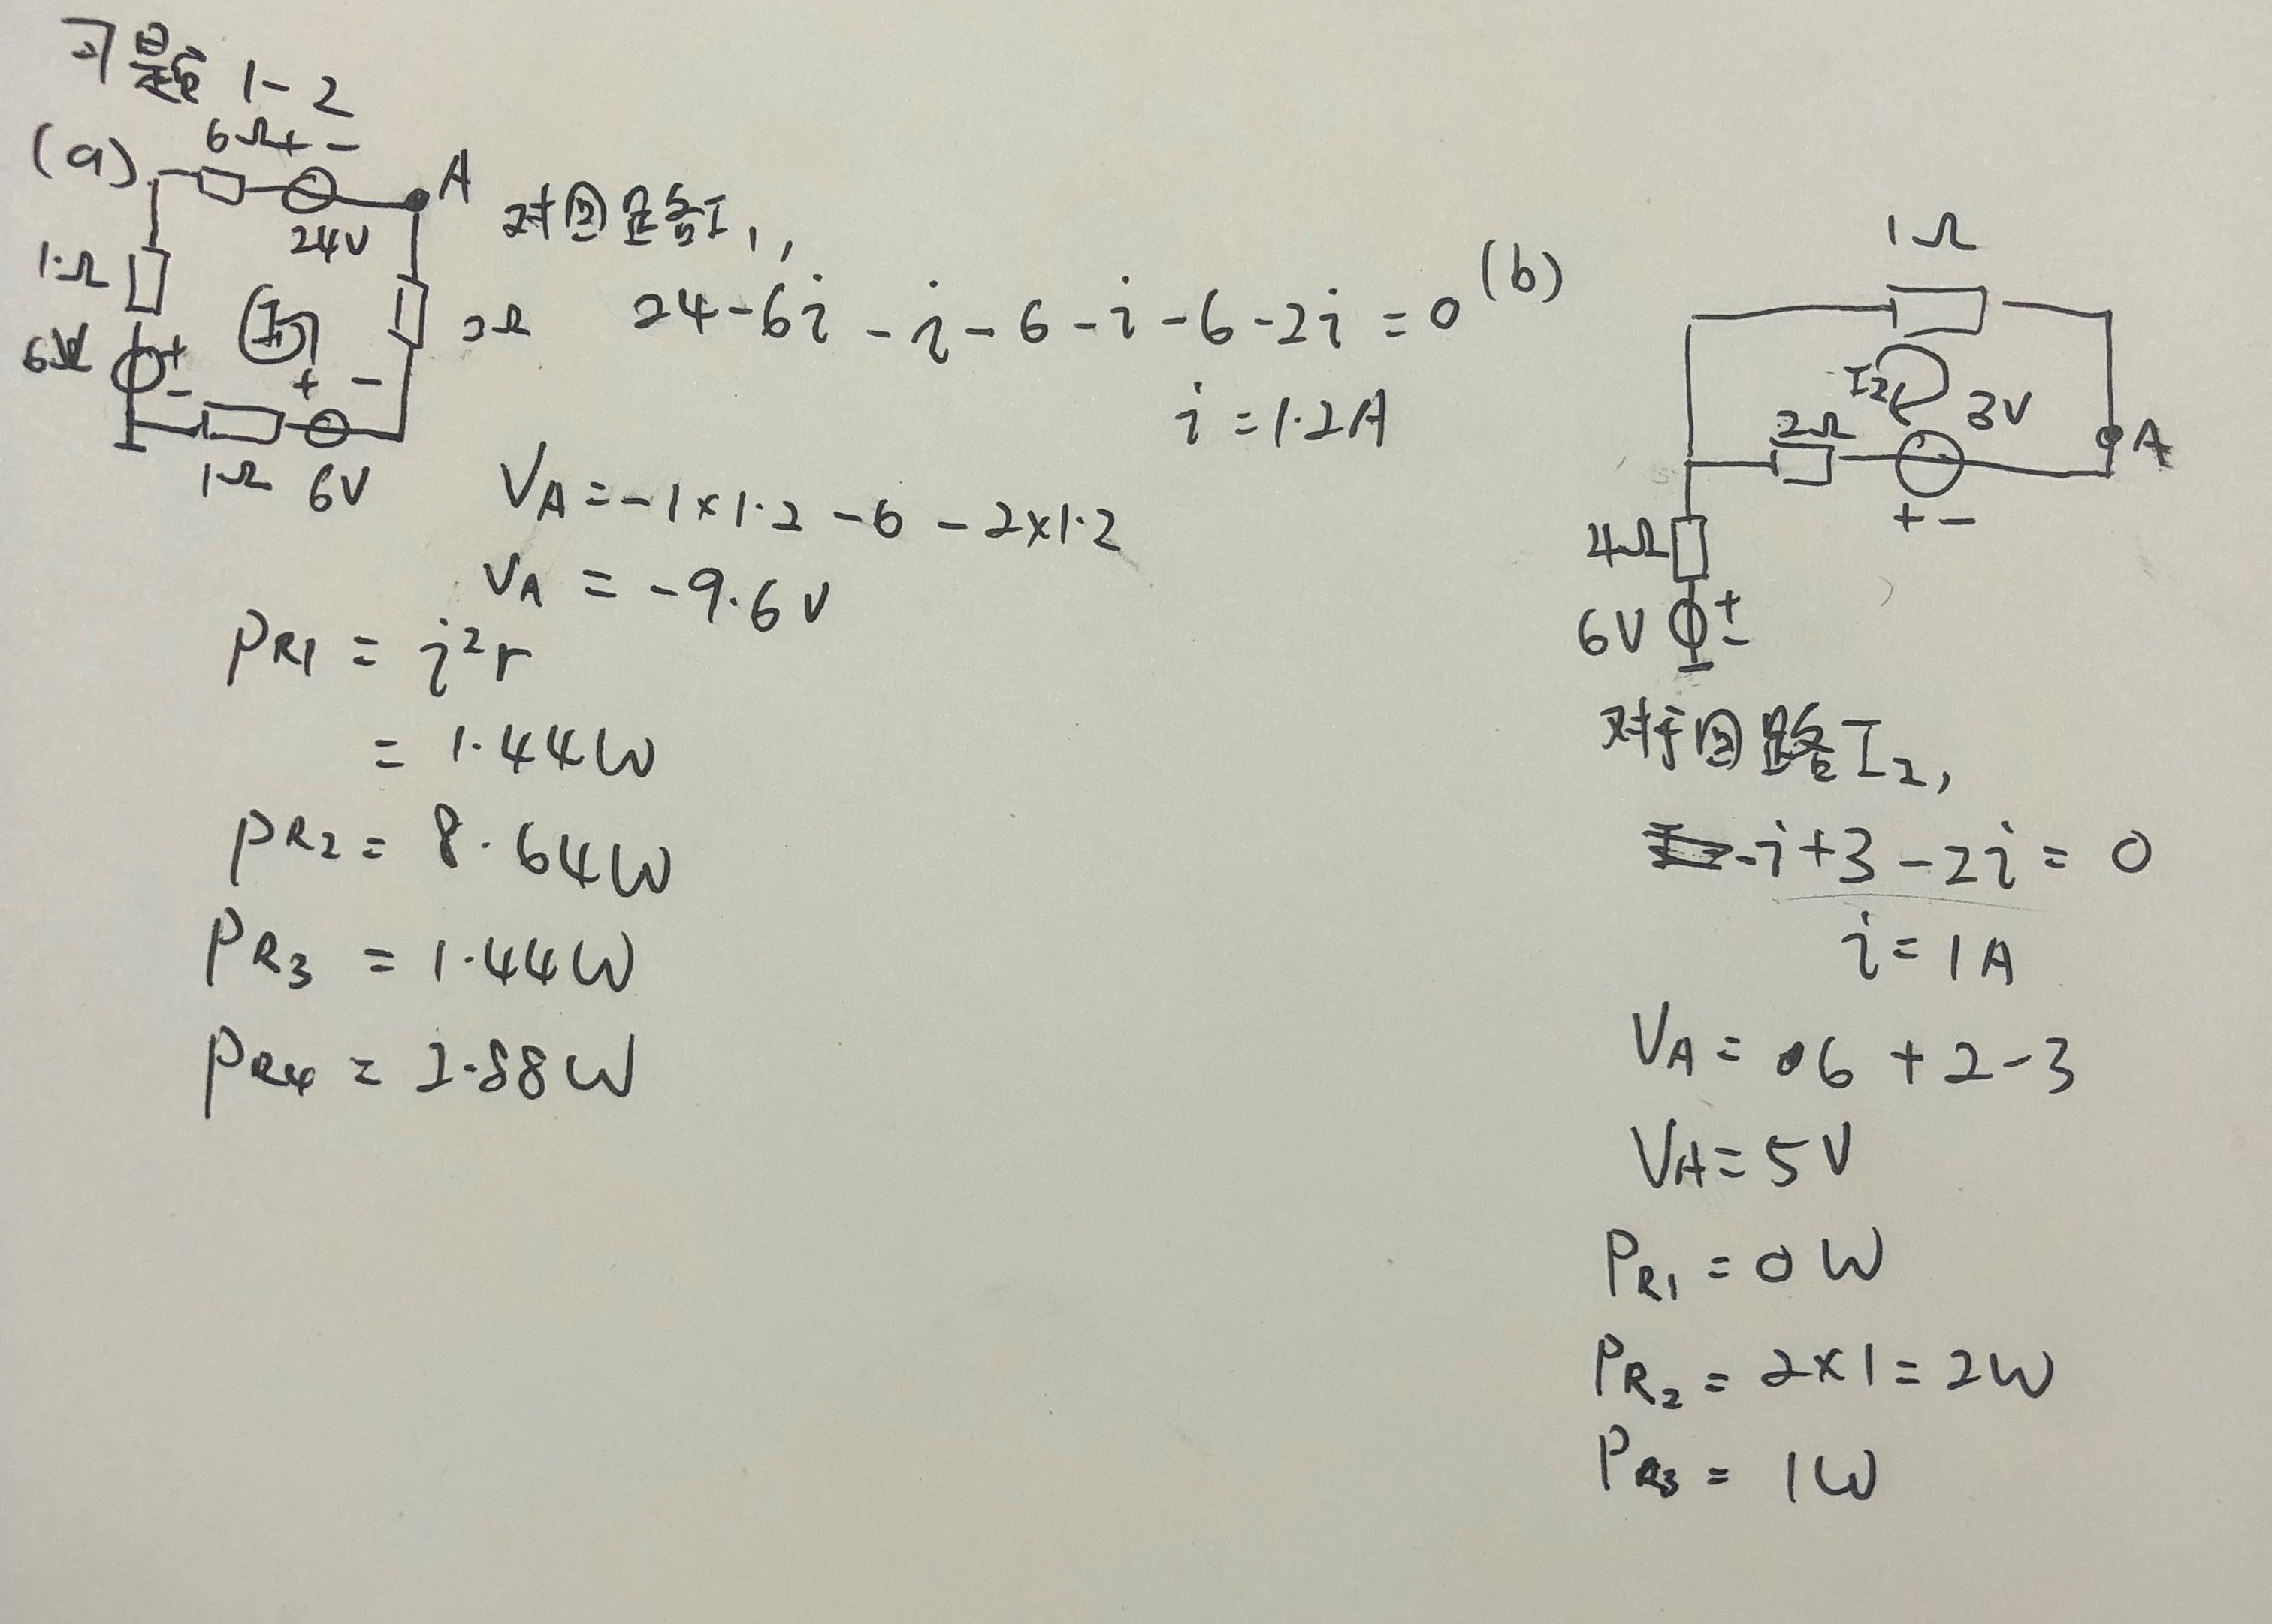 习题 1-2
(a)
6Ω + -
A
24V
1Ω
2Ω
6V
+
-
I₁
+ -
1Ω 6V
对回路I₁,
24-6i-i-6-i-6-2i=0
i=1.2A
V_A=-1×1.2-6-2×1.2
V_A=-9.6V
P_R1=i²r
=1.44W
P_R2=8.64W
P_R3=1.44W
P_R4=2.88W
(b)
1Ω
I₂
3V
2Ω
A
+ -
4Ω
6V
+
-
对于回路I₂,
-i+3-2i=0
i=1A
V_A=6+2-3
V_A=5V
P_R1=0W
P_R2=2×1=2W
P_R3=1W